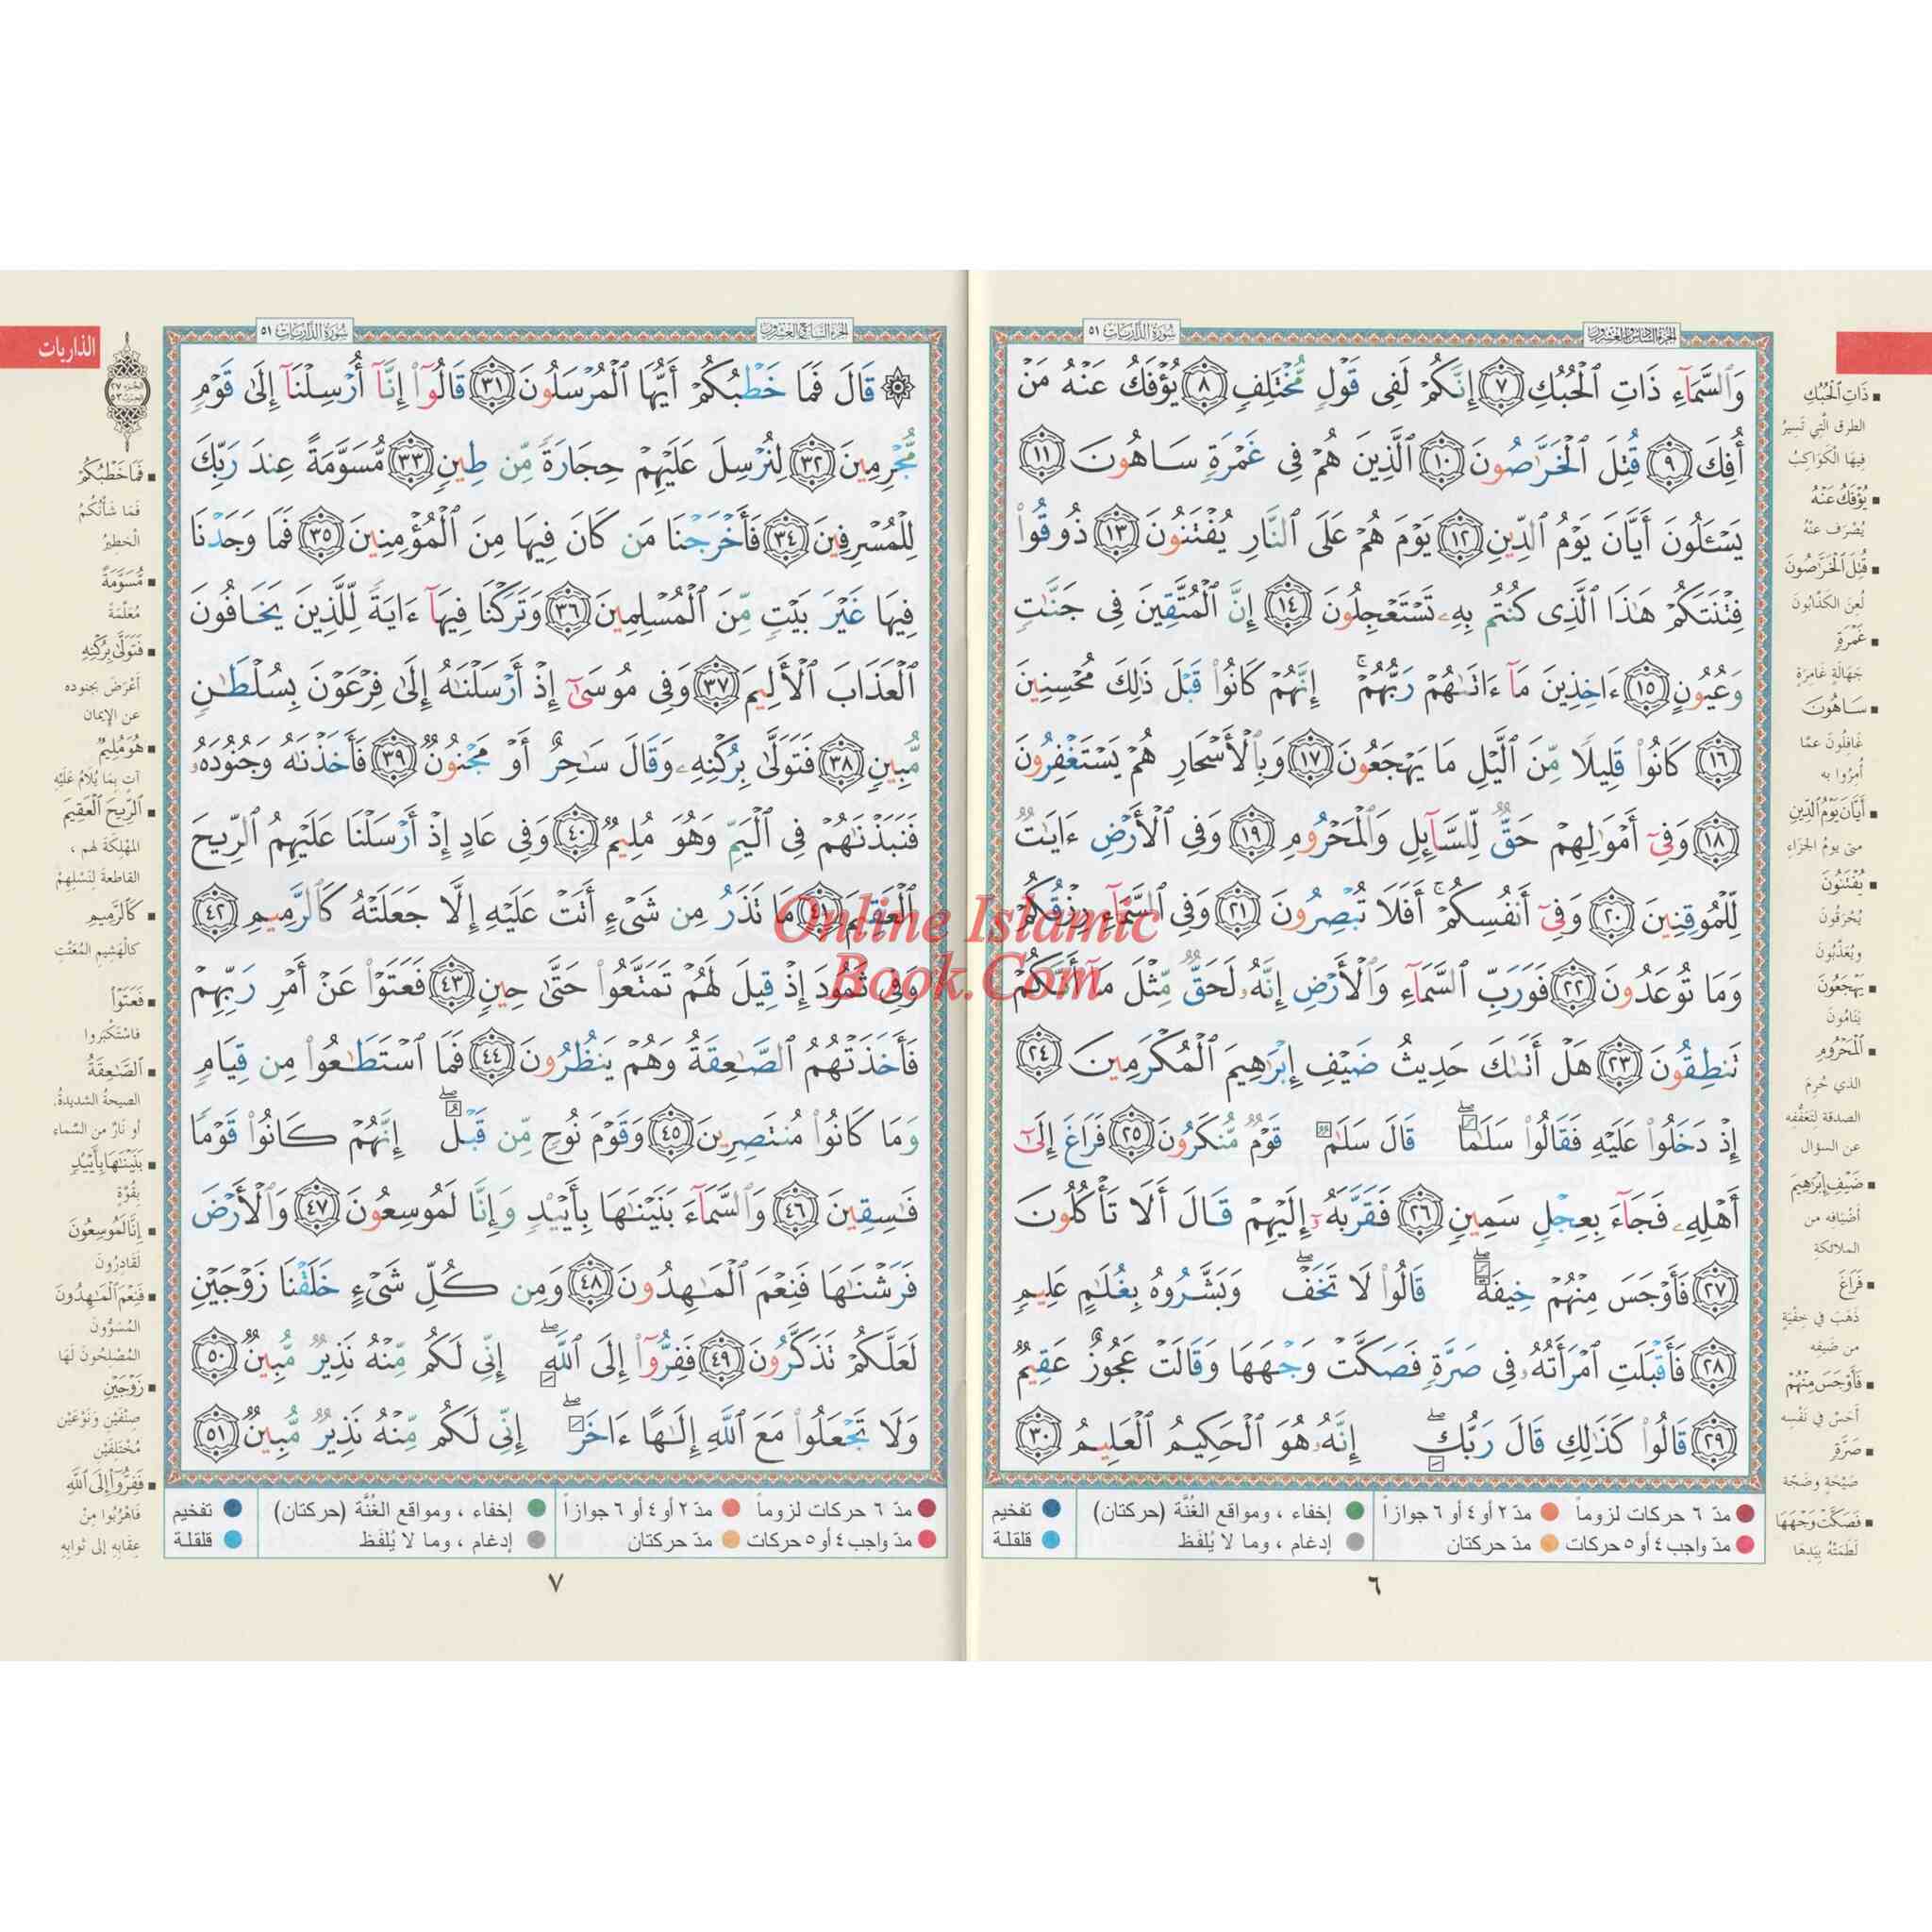 الجزء السادس والعشرون
سورة الذاريات ٥١
وَالسَّمَآءِ ذَاتِ الْحُبُكِ ٧ إِنَّكُمْ لَفِى قَوْلٍ مُّخْتَلِفٍ ٨ يُؤْفَكُ عَنْهُ مَنْ
أُفِكَ ٩ قُتِلَ الْخَرَّاصُونَ ١٠ الَّذِينَ هُمْ فِى غَمْرَةٍ سَاهُونَ ١١
يَسْـَٔلُونَ أَيَّانَ يَوْمُ الدِّينِ ١٢ يَوْمَ هُمْ عَلَى النَّارِ يُفْتَنُونَ ١٣ ذُوقُوا۟
فِتْنَتَكُمْ هَٰذَا الَّذِى كُنتُم بِهِۦ تَسْتَعْجِلُونَ ١٤ إِنَّ الْمُتَّقِينَ فِى جَنَّٰتٍ
وَعُيُونٍ ١٥ ءَاخِذِينَ مَآ ءَاتَىٰهُمْ رَبُّهُمْ ۚ إِنَّهُمْ كَانُوا۟ قَبْلَ ذَٰلِكَ مُحْسِنِينَ
١٦ كَانُوا۟ قَلِيلًا مِّنَ الَّيْلِ مَا يَهْجَعُونَ ١٧ وَبِالْأَسْحَارِ هُمْ يَسْتَغْفِرُونَ
١٨ وَفِىٓ أَمْوَٰلِهِمْ حَقٌّ لِّلسَّآئِلِ وَالْمَحْرُومِ ١٩ وَفِى الْأَرْضِ ءَايَٰتٌ
لِّلْمُوقِنِينَ ٢٠ وَفِىٓ أَنفُسِكُمْ ۚ أَفَلَا تُبْصِرُونَ ٢١ وَفِى السَّمَآءِ رِزْقُكُمْ
وَمَا تُوعَدُونَ ٢٢ فَوَرَبِّ السَّمَآءِ وَالْأَرْضِ إِنَّهُۥ لَحَقٌّ مِّثْلَ مَآ أَنَّكُمْ
تَنطِقُونَ ٢٣ هَلْ أَتَىٰكَ حَدِيثُ ضَيْفِ إِبْرَٰهِيمَ الْمُكْرَمِينَ ٢٤
إِذْ دَخَلُوا۟ عَلَيْهِ فَقَالُوا۟ سَلَٰمًا ۖ قَالَ سَلَٰمٌ قَوْمٌ مُّنكَرُونَ ٢٥ فَرَاغَ إِلَىٰٓ
أَهْلِهِۦ فَجَآءَ بِعِجْلٍ سَمِينٍ ٢٦ فَقَرَّبَهُۥٓ إِلَيْهِمْ قَالَ أَلَا تَأْكُلُونَ
٢٧ فَأَوْجَسَ مِنْهُمْ خِيفَةً ۖ قَالُوا۟ لَا تَخَفْ ۖ وَبَشَّرُوهُ بِغُلَٰمٍ عَلِيمٍ
٢٨ فَأَقْبَلَتِ امْرَأَتُهُۥ فِى صَرَّةٍ فَصَكَّتْ وَجْهَهَا وَقَالَتْ عَجُوزٌ عَقِيمٌ
٢٩ قَالُوا۟ كَذَٰلِكِ قَالَ رَبُّكِ ۖ إِنَّهُۥ هُوَ الْحَكِيمُ الْعَلِيمُ ٣٠
ذَاتِ الْحُبُكِ
الطرق الَّتِي تَسِيرُ
فِيهَا الْكَوَاكِبُ
يُؤْفَكُ عَنْهُ
يُصْرَف عَنْهُ
قُتِلَ الْخَرَّاصُونَ
لُعِنَ الكَذَّابُونَ
غَمْرَةٍ
جَهَالَةٍ غَامِرَةٍ
سَاهُونَ
غَافِلُونَ عمَّا
أُمِرُوا به
أَيَّانَ يَوْمُ الدِّينِ
متى يومُ الجَزَاءِ
يُفْتَنُونَ
يُحْرَقُونَ
ويُعَذَّبُونَ
يَهْجَعُونَ
يَنَامُونَ
الْمَحْرُومِ
الذي حُرِمَ
الصدقة لِتَعَفُّفه
عن السؤال
ضَيْفِ إِبْرَٰهِيمَ
أَضْيَافه من
الملائكةِ
فَرَاغَ
ذَهَبَ في خِفْيَةٍ
من ضَيفِه
فَأَوْجَسَ مِنْهُمْ
أحَسَّ في نَفْسِه
صَرَّةٍ
صَيْحَةٍ وضَجّة
فَصَكَّتْ وَجْهَهَا
لَطَمَتْهُ بِيَدِهَا
مدّ ٦ حركات لزوماً مدّ ٢ أو ٤ أو ٦ جوازاً إخفاء ، ومواقع الغُنَّة (حركتان) تفخيم
مدّ واجب ٤ أو ٥ حركات مدّ حركتان إدغام ، وما لا يُلفَظ قلقلة
٦
الجزء السابع والعشرون
سورة الذاريات ٥١
الذاريات
قَالَ فَمَا خَطْبُكُمْ أَيُّهَا الْمُرْسَلُونَ ٣١ قَالُوٓا۟ إِنَّآ أُرْسِلْنَآ إِلَىٰ قَوْمٍ
مُّجْرِمِينَ ٣٢ لِنُرْسِلَ عَلَيْهِمْ حِجَارَةً مِّن طِينٍ ٣٣ مُّسَوَّمَةً عِندَ رَبِّكَ
لِلْمُسْرِفِينَ ٣٤ فَأَخْرَجْنَا مَن كَانَ فِيهَا مِنَ الْمُؤْمِنِينَ ٣٥ فَمَا وَجَدْنَا
فِيهَا غَيْرَ بَيْتٍ مِّنَ الْمُسْلِمِينَ ٣٦ وَتَرَكْنَا فِيهَآ ءَايَةً لِّلَّذِينَ يَخَافُونَ
الْعَذَابَ الْأَلِيمَ ٣٧ وَفِى مُوسَىٰٓ إِذْ أَرْسَلْنَٰهُ إِلَىٰ فِرْعَوْنَ بِسُلْطَٰنٍ
مُّبِينٍ ٣٨ فَتَوَلَّىٰ بِرُكْنِهِۦ وَقَالَ سَٰحِرٌ أَوْ مَجْنُونٌ ٣٩ فَأَخَذْنَٰهُ وَجُنُودَهُۥ
فَنَبَذْنَٰهُمْ فِى الْيَمِّ وَهُوَ مُلِيمٌ ٤٠ وَفِى عَادٍ إِذْ أَرْسَلْنَا عَلَيْهِمُ الرِّيحَ
الْعَقِيمَ ٤١ مَا تَذَرُ مِن شَىْءٍ أَتَتْ عَلَيْهِ إِلَّا جَعَلَتْهُ كَالرَّمِيمِ ٤٢
وَفِى ثَمُودَ إِذْ قِيلَ لَهُمْ تَمَتَّعُوا۟ حَتَّىٰ حِينٍ ٤٣ فَعَتَوْا۟ عَنْ أَمْرِ رَبِّهِمْ
فَأَخَذَتْهُمُ الصَّٰعِقَةُ وَهُمْ يَنظُرُونَ ٤٤ فَمَا اسْتَطَٰعُوا۟ مِن قِيَامٍ
وَمَا كَانُوا۟ مُنتَصِرِينَ ٤٥ وَقَوْمَ نُوحٍ مِّن قَبْلُ ۖ إِنَّهُمْ كَانُوا۟ قَوْمًا
فَٰسِقِينَ ٤٦ وَالسَّمَآءَ بَنَيْنَٰهَا بِأَيْي۟دٍ وَإِنَّا لَمُوسِعُونَ ٤٧ وَالْأَرْضَ
فَرَشْنَٰهَا فَنِعْمَ الْمَٰهِدُونَ ٤٨ وَمِن كُلِّ شَىْءٍ خَلَقْنَا زَوْجَيْنِ
لَعَلَّكُمْ تَذَكَّرُونَ ٤٩ فَفِرُّوٓا۟ إِلَى اللَّهِ ۖ إِنِّى لَكُم مِّنْهُ نَذِيرٌ مُّبِينٌ ٥٠
وَلَا تَجْعَلُوا۟ مَعَ اللَّهِ إِلَٰهًا ءَاخَرَ ۖ إِنِّى لَكُم مِّنْهُ نَذِيرٌ مُّبِينٌ ٥١
فَمَا خَطْبُكُمْ
فَمَا شَأْنُكُمُ
الْخَطِيرُ
مُسَوَّمَةً
مُعَلَّمَةً
فَتَوَلَّىٰ بِرُكْنِهِ
أَعْرَضَ بجنوده
عن الإيمان
هُوَ مُلِيمٌ
آتٍ بِمَا يُلَامُ عَلَيْهِ
الرِّيحَ الْعَقِيمَ
المُهْلِكَةَ لهم ،
القاطعةَ لِنَسْلِهِمْ
كَالرَّمِيمِ
كالْهَشِيمِ المُفَتَّتِ
فَعَتَوْا۟
فاسْتَكْبَروا
الصَّٰعِقَةُ
الصيحةُ الشديدةُ،
أو نَارٌ من السَّماء
بَنَيْنَٰهَا بِأَيْي۟دٍ
بِقُوَّةٍ
إِنَّا لَمُوسِعُونَ
لَقَادِرُونَ
فَنِعْمَ الْمَٰهِدُونَ
المُسَوُّونَ
المُصْلِحُونَ لَهَا
زَوْجَيْنِ
صِنْفَيْنِ وَنَوْعَيْنِ
مُخْتَلِفَيْنِ
فَفِرُّوٓا۟ إِلَى اللَّهِ
فَاهْرُبُوا مِنْ
عِقَابِهِ إلى ثوابِهِ
مدّ ٦ حركات لزوماً مدّ ٢ أو ٤ أو ٦ جوازاً إخفاء ، ومواقع الغُنَّة (حركتان) تفخيم
مدّ واجب ٤ أو ٥ حركات مدّ حركتان إدغام ، وما لا يُلفَظ قلقلة
٧
Online Islamic
Book.Com